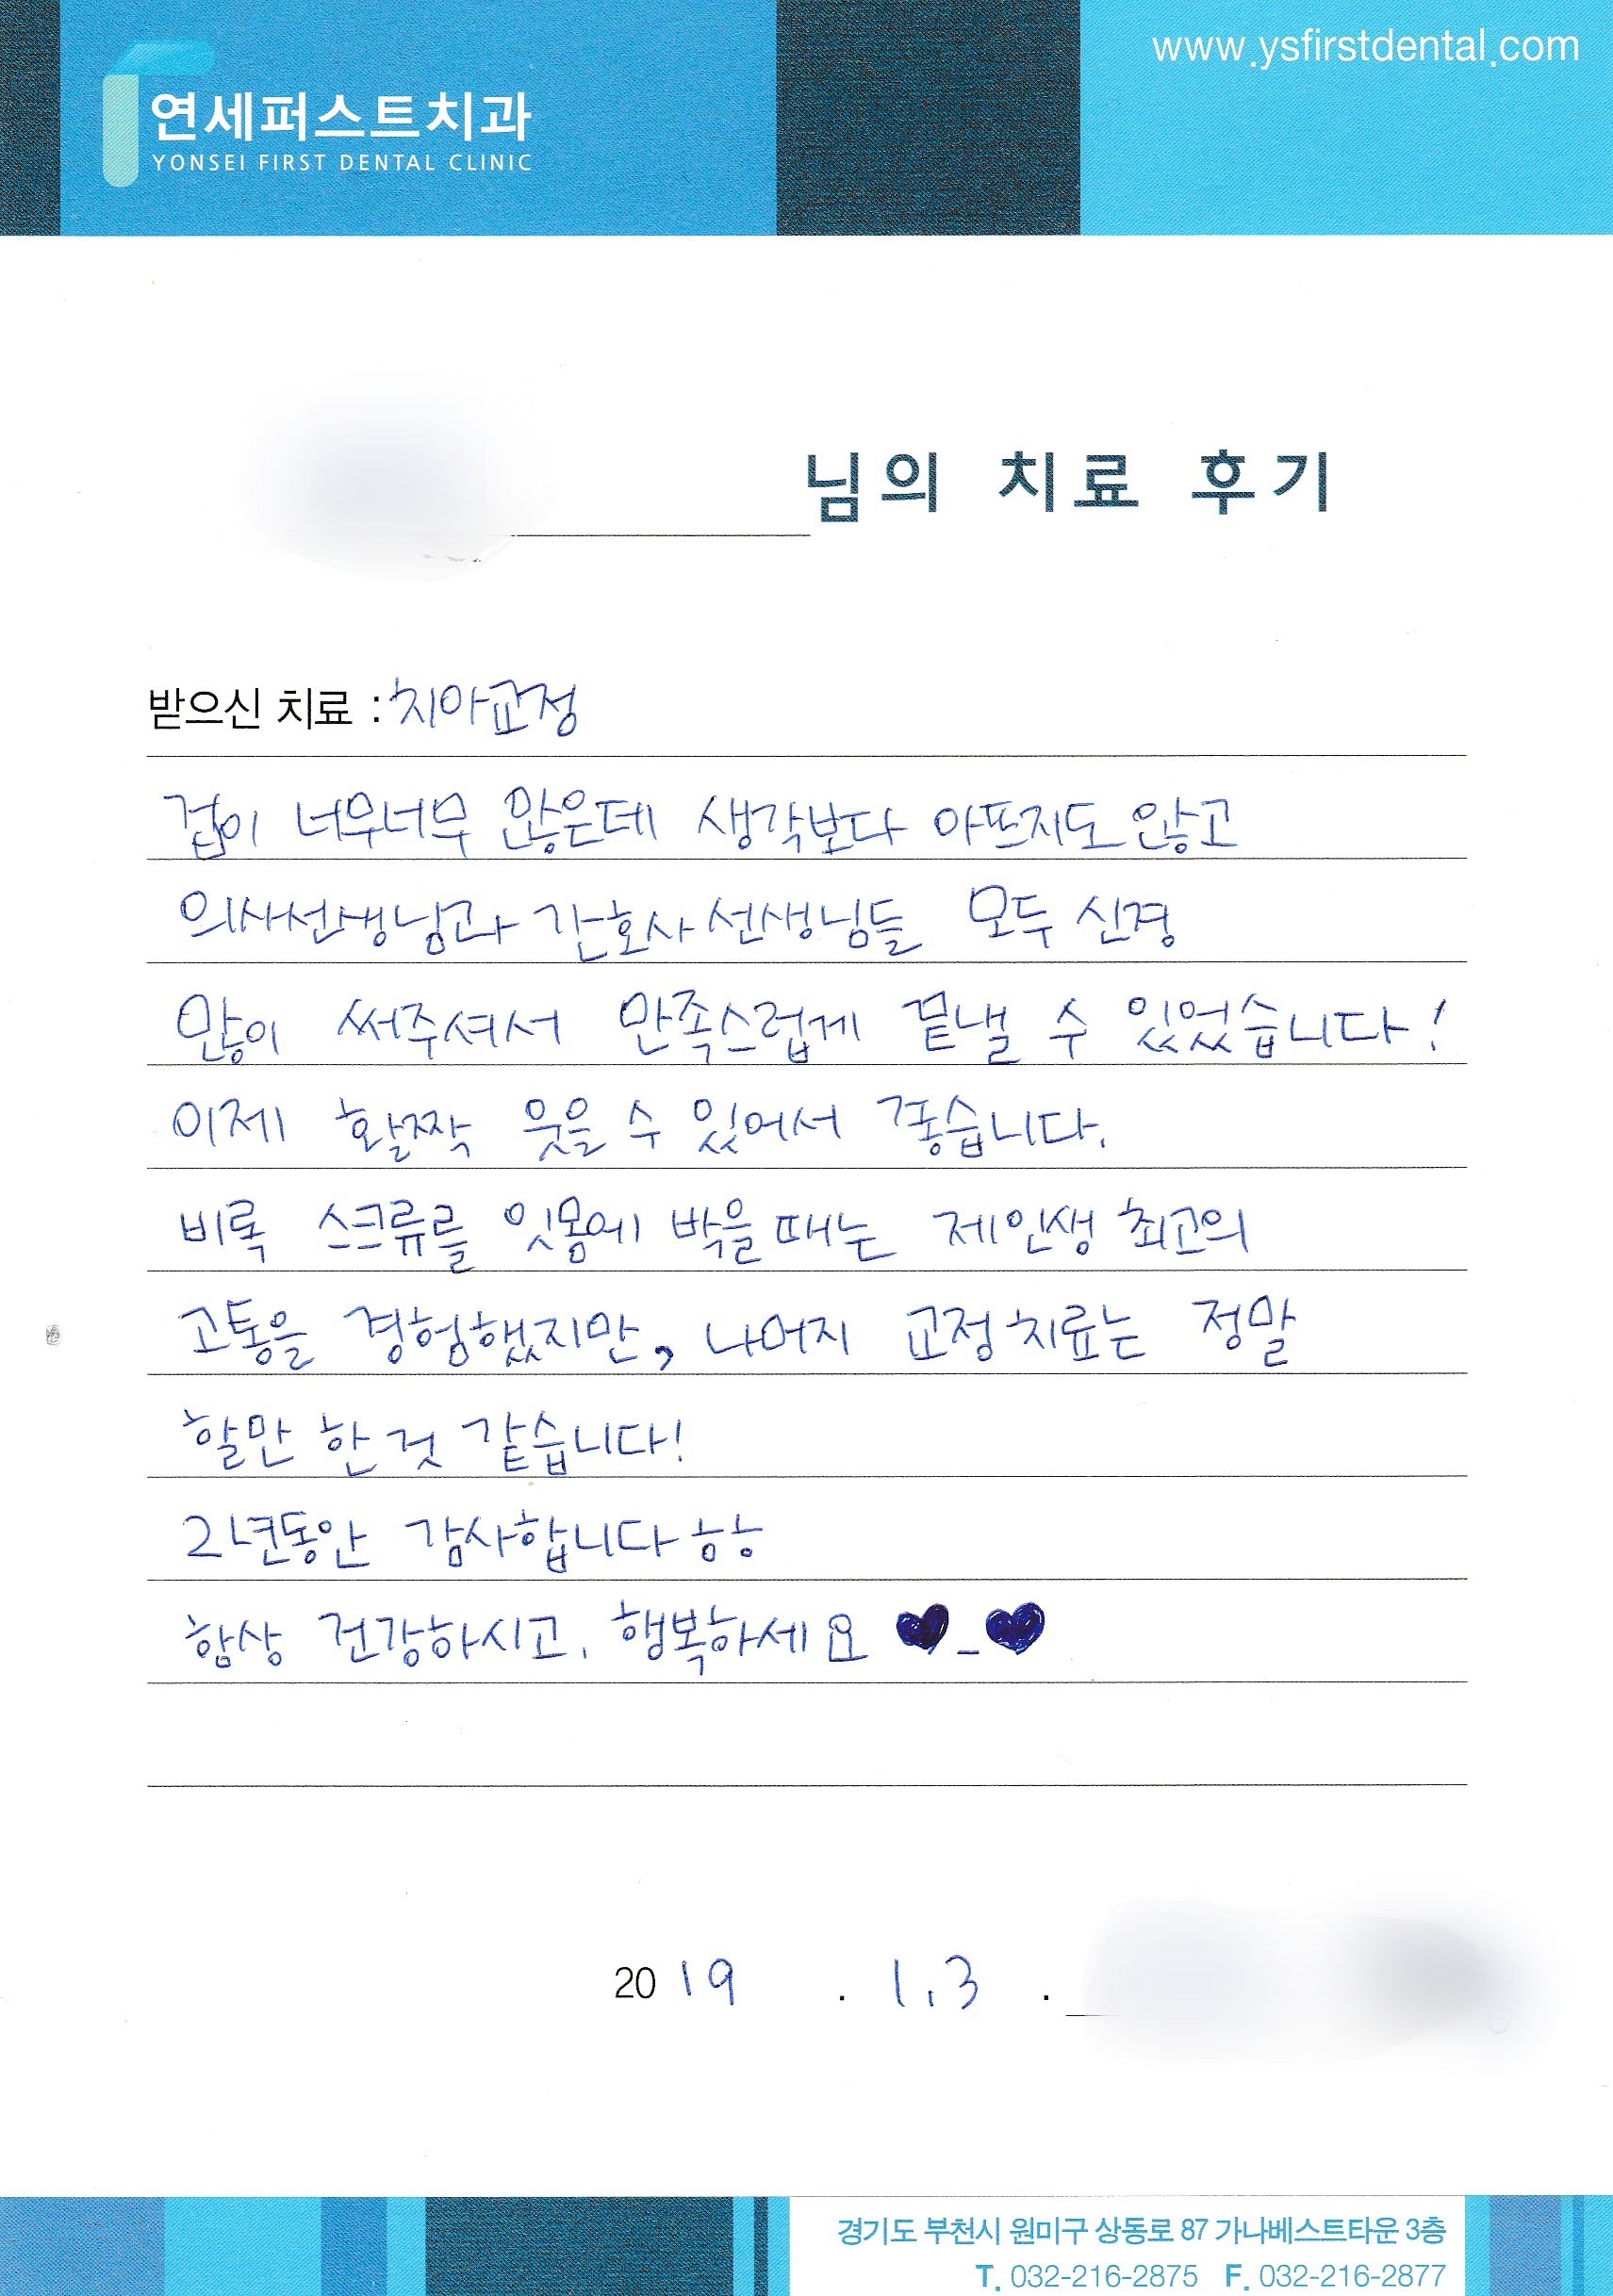 www.ysfirstdental.com
연세퍼스트치과
YONSEI FIRST DENTAL CLINIC
님의 치료 후기
받으신 치료 : 치아교정
겁이 너무너무 많은데 생각보다 아프지도 않고
의사선생님과 간호사 선생님들 모두 신경
많이 써주셔서 만족스럽게 끝낼 수 있었습니다!
이제 활짝 웃을 수 있어서 좋습니다.
비록 스크류를 잇몸에 박을 때는 제 인생 최고의
고통을 경험했지만, 나머지 교정치료는 정말
할만 한 것 같습니다!
2년동안 감사합니다 ㅎㅎ
항상 건강하시고, 행복하세요 ♥_♥
2019 . 1.3 .
경기도 부천시 원미구 상동로 87 가나베스트타운 3층
T. 032-216-2875 F. 032-216-2877